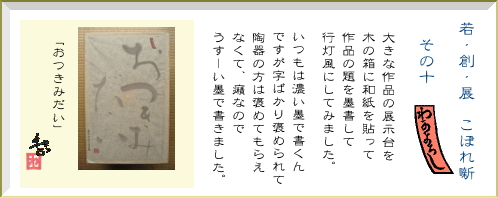 若・創・展　こぼれ噺
その十
わかつくし
大きな作品の展示台を
木の箱に和紙を貼って
作品の題を墨書して
行灯風にしてみました。
いつもは濃い墨で書くん
ですが字ばかり褒められて
陶器の方は褒めてもらえ
なくて、癪なので
うすーい墨で書きました。
おつきみだい
「おつきみだい」